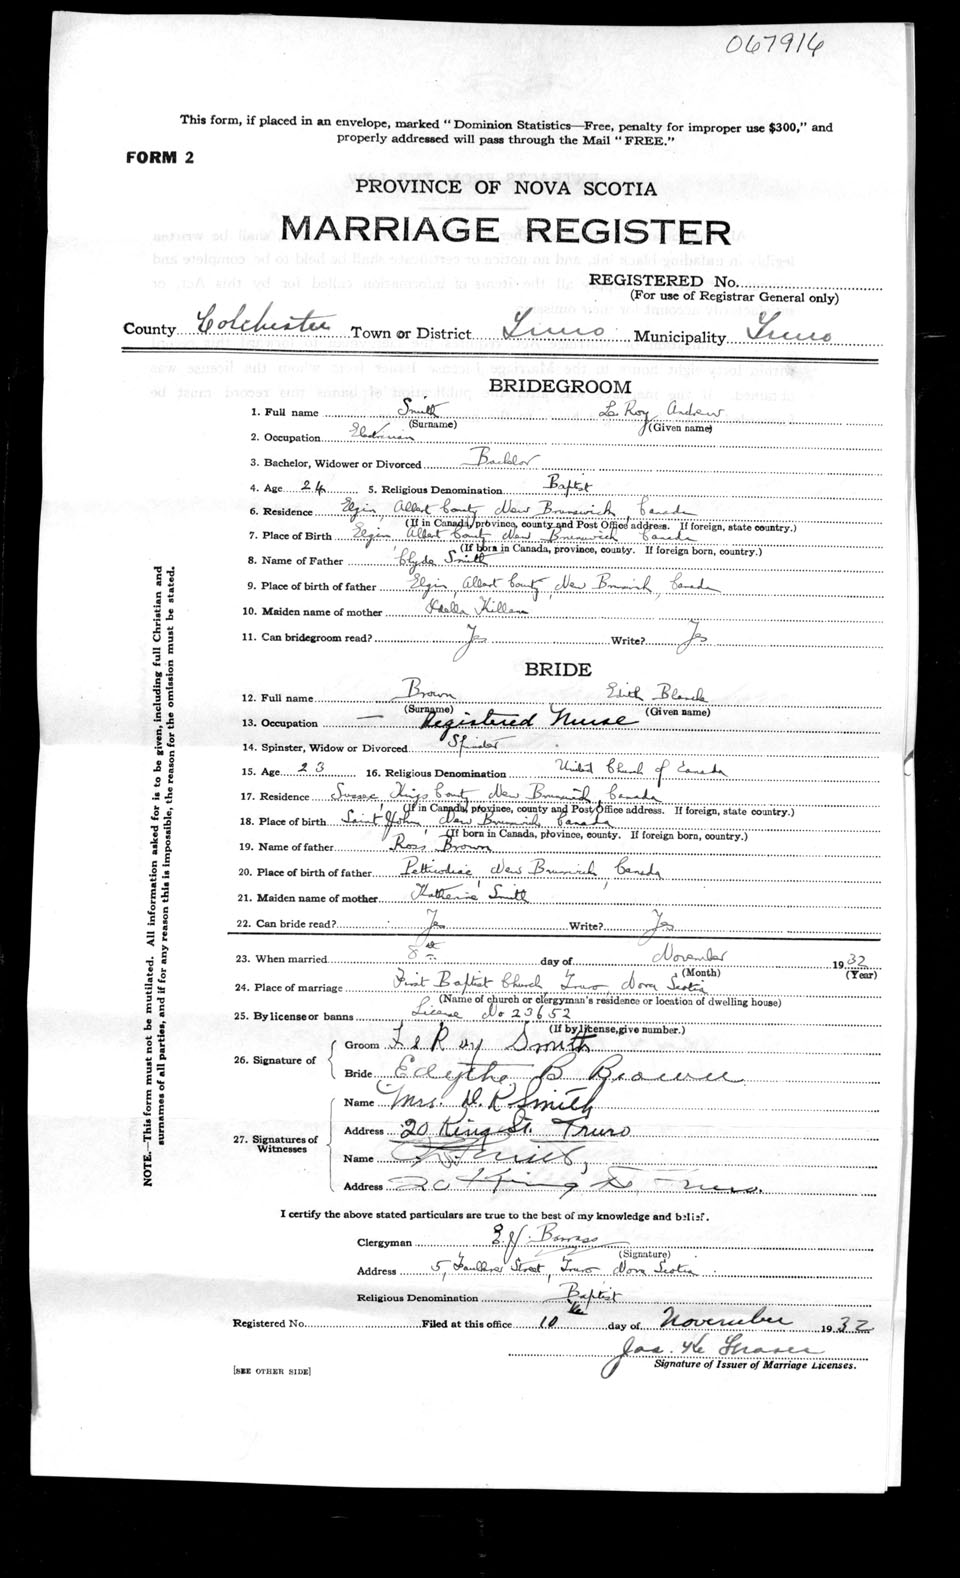 067916
This form, if placed in an envelope, marked "Dominion Statistics—Free, penalty for improper use $300," and
properly addressed will pass through the Mail "FREE."
FORM 2
PROVINCE OF NOVA SCOTIA
MARRIAGE REGISTER
REGISTERED No.
(For use of Registrar General only)
County Colchester Town or District Truro Municipality Truro
BRIDEGROOM
1. Full name Smith Le Roy Andrew
(Surname) (Given name)
2. Occupation
3. Bachelor, Widower or Divorced Bachelor
4. Age 24 5. Religious Denomination Baptist
6. Residence Elgin, Albert County, New Brunswick, Canada
(If in Canada, province, county and Post Office address. If foreign, state country.)
7. Place of Birth Elgin Albert County New Brunswick Canada
(If born in Canada, province, county. If foreign born, country.)
8. Name of Father Clyde Smith
9. Place of birth of father Elgin, Albert County, New Brunswick, Canada
10. Maiden name of mother Killam
11. Can bridegroom read? Yes Write? Yes
BRIDE
12. Full name Brown Edith Blanche
(Surname) (Given name)
13. Occupation — Registered Nurse
14. Spinster, Widow or Divorced Spinster
15. Age 23 16. Religious Denomination United Church of Canada
17. Residence Sussex, Kings County, New Brunswick, Canada
(If in Canada, province, county and Post Office address. If foreign, state country.)
18. Place of birth Saint John, New Brunswick, Canada
(If born in Canada, province, county. If foreign born, country.)
19. Name of father Ross Brown
20. Place of birth of father Petticodiac, New Brunswick, Canada
21. Maiden name of mother Katherine Smith
22. Can bride read? Yes Write? Yes
23. When married 8th day of November 1932
(Month) (Year)
24. Place of marriage First Baptist Church, Truro, Nova Scotia
(Name of church or clergyman's residence or location of dwelling house)
25. By license or banns License No 23652
(If by license, give number.)
26. Signature of
Groom LeRoy Smith
Bride Edythe B Brown
27. Signatures of Witnesses
Name Mrs. D. R Smith
Address 20 King St. Truro
Name
Address 20 King St Truro.
I certify the above stated particulars are true to the best of my knowledge and belief.
Clergyman E. J. Barrass
(Signature)
Address 5, Faulkner Street, Truro, Nova Scotia
Religious Denomination Baptist
Registered No. Filed at this office 10th day of November 1932
Jas. K. Fraser
Signature of Issuer of Marriage Licenses.
[SEE OTHER SIDE]
NOTE.—This form must not be mutilated. All information asked for is to be given, including full Christian and
surnames of all parties, and if for any reason this is impossible, the reason for the omission must be stated.